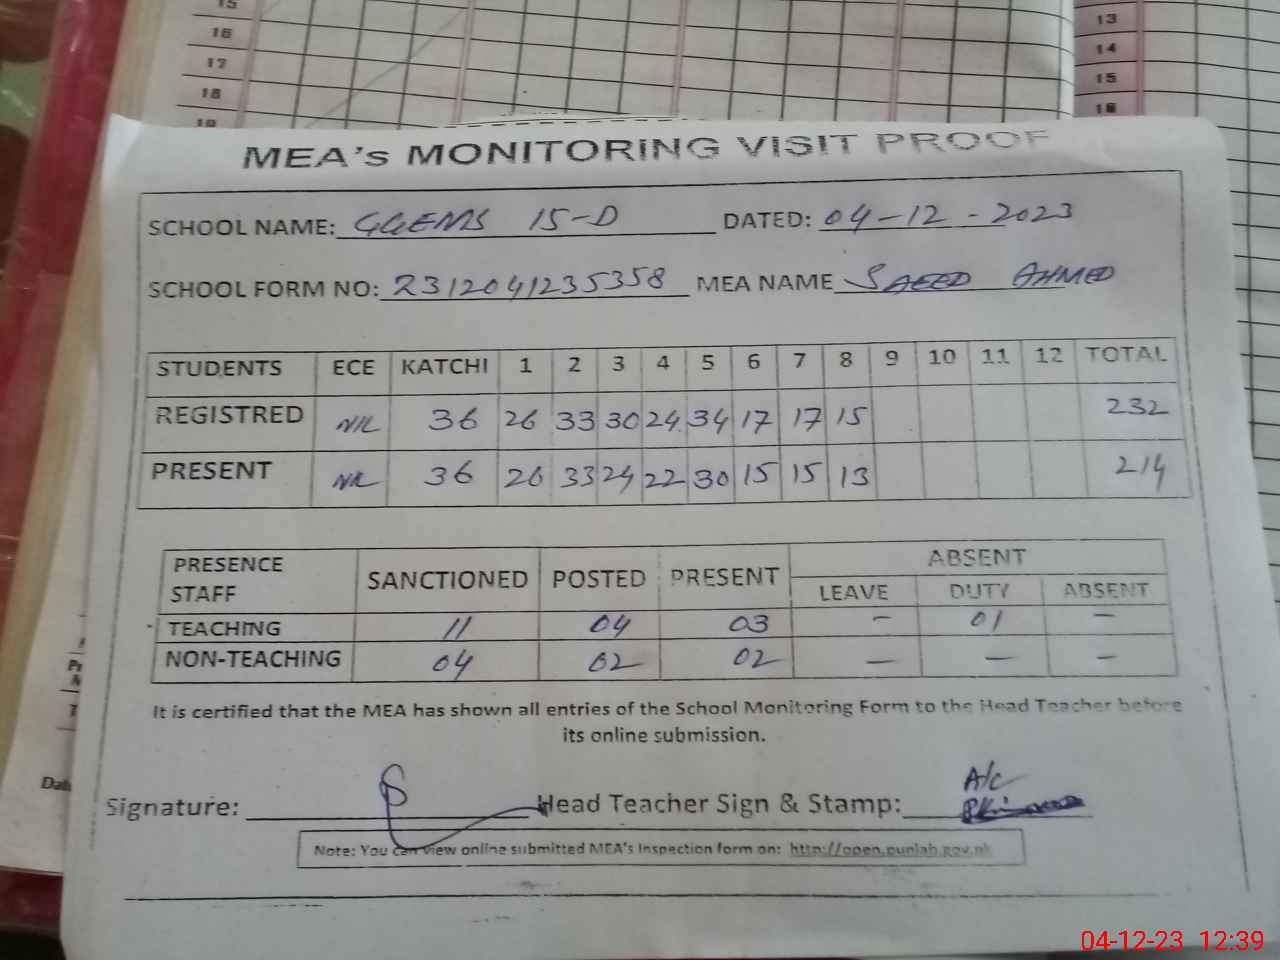 15
16
17
18
19
13
14
15
16
MEA's MONITORING VISIT PROOF
SCHOOL NAME: GGEMS 15-D DATED: 04-12-2023
SCHOOL FORM NO: 2312041235358 MEA NAME SAEED AHMED
STUDENTS ECE KATCHI 1 2 3 4 5 6 7 8 9 10 11 12 TOTAL
REGISTRED NIL 36 26 33 30 24 34 17 17 15 232
PRESENT NIL 36 26 33 24 22 30 15 15 13 214
PRESENCE STAFF SANCTIONED POSTED PRESENT ABSENT
LEAVE DUTY ABSENT
TEACHING 11 04 03 - 01 -
NON-TEACHING 04 02 02 - - -
It is certified that the MEA has shown all entries of the School Monitoring Form to the Head Teacher before
its online submission.
A/c
Signature: Head Teacher Sign & Stamp:
Note: You can view online submitted MEA's Inspection form on: http://open.punjab.gov.pk
04-12-23 12:39